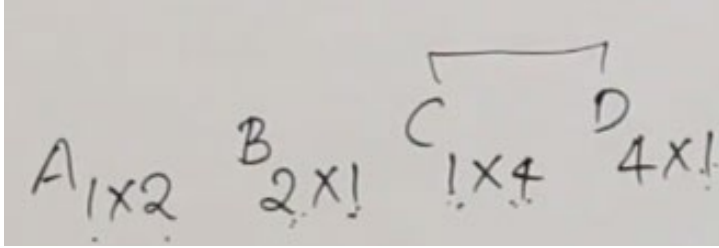 A 1×2 B 2×1 C 1×4 D 4×1